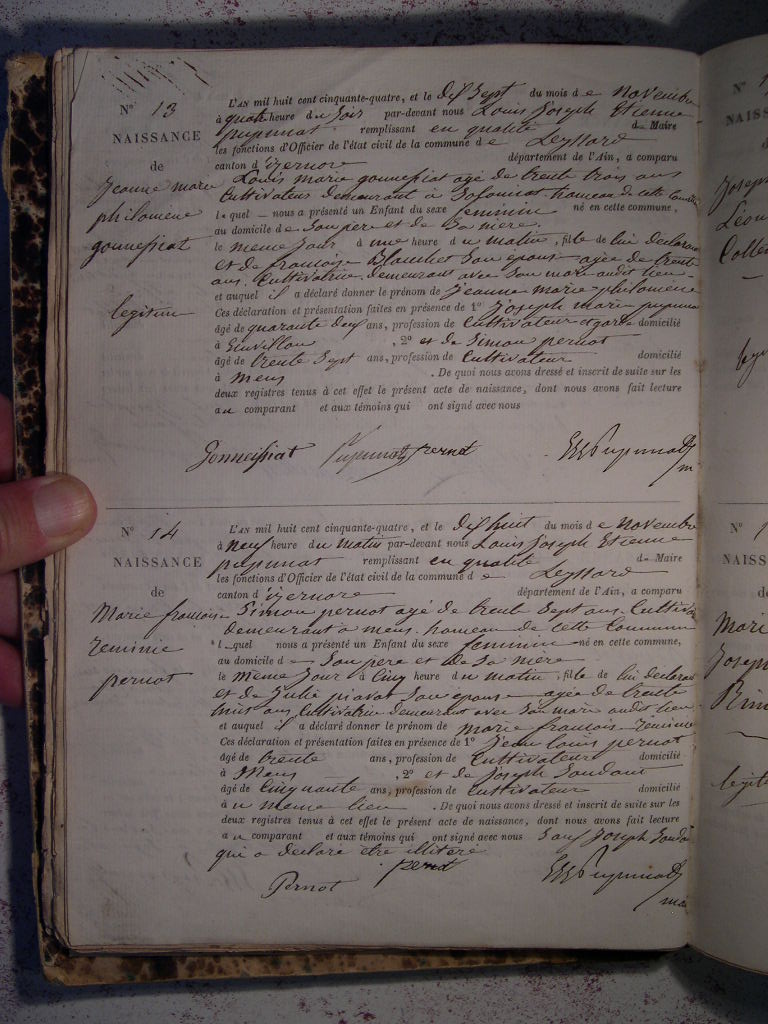 N° 13
NAISSANCE
de
Jeanne marie
philomène
gonnessiat
legitime
L'AN mil huit cent cinquante-quatre, et le dix Sept du mois de Novembre
à quatre heure du Soir par-devant nous Louis Joseph Etienne
pupunat remplissant en qualité de Maire
les fonctions d'Officier de l'état civil de la commune de Leyssard
canton d'izernore département de l'Ain, a comparu
Louis marie gonnessiat agé de trente trois ans
Cultivateur demeurant à Solonniat hameau de cette
lequel nous a présenté un Enfant du sexe feminin né en cette commune,
au domicile de Son pere et de Sa mère.
le meme Jour à une heure du matin, fille de lui declarant
et de francoise Blanchet Son epouse agée de trente
ans. Cultivatrice demeurant avec Son mari audit lieu
et auquel il a déclaré donner le prénom de jeanne marie philomène
Ces déclaration et présentation faites en présence de 1° Joseph marie pupunat
âgé de quarante deux ans, profession de Cultivateur et garde domicilié
à , 2° et de Simon pernot
âgé de trente Sept ans, profession de Cultivateur domicilié
à mens . De quoi nous avons dressé et inscrit de suite sur les
deux registres tenus à cet effet le présent acte de naissance, dont nous avons fait lecture
au comparant et aux témoins qui ont signé avec nous
Gonnessiat Pupunat pernot Pupunat
m
N° 14
NAISSANCE
de
Marie francoise
Zeminie
pernot
L'AN mil huit cent cinquante-quatre, et le dix huit du mois de Novembre
à neuf heure du matin par-devant nous Louis Joseph Etienne
pupunat remplissant en qualité de Maire
les fonctions d'Officier de l'état civil de la commune de Leyssard
canton d'izernore département de l'Ain, a comparu
Simon pernot agé de trente Sept ans. Cultivateur
demeurant a mens. hameau de cette Commune
lequel nous a présenté un Enfant du sexe feminin né en cette commune,
au domicile de Son pere et de Sa mère
le meme Jour à Cinq heure du matin, fille de lui declarant
et de Julie Son epouse agée de trente
huit ans, Cultivatrice demeurant avec Son mari audit lieu
et auquel il a déclaré donner le prénom de marie francois Zeminie
Ces déclaration et présentation faites en présence de 1° Jean louis pernot
âgé de trente ans, profession de Cultivateur domicilié
à Mens , 2° et de Joseph Goudard
âgé de Cinquante ans, profession de Cultivateur domicilié
à u meme lieu . De quoi nous avons dressé et inscrit de suite sur les
deux registres tenus à cet effet le présent acte de naissance, dont nous avons fait lecture
au comparant et aux témoins qui ont signé avec nous Sauf Joseph
qui a declaré etre illiteré
Pernot pernot Pupunat